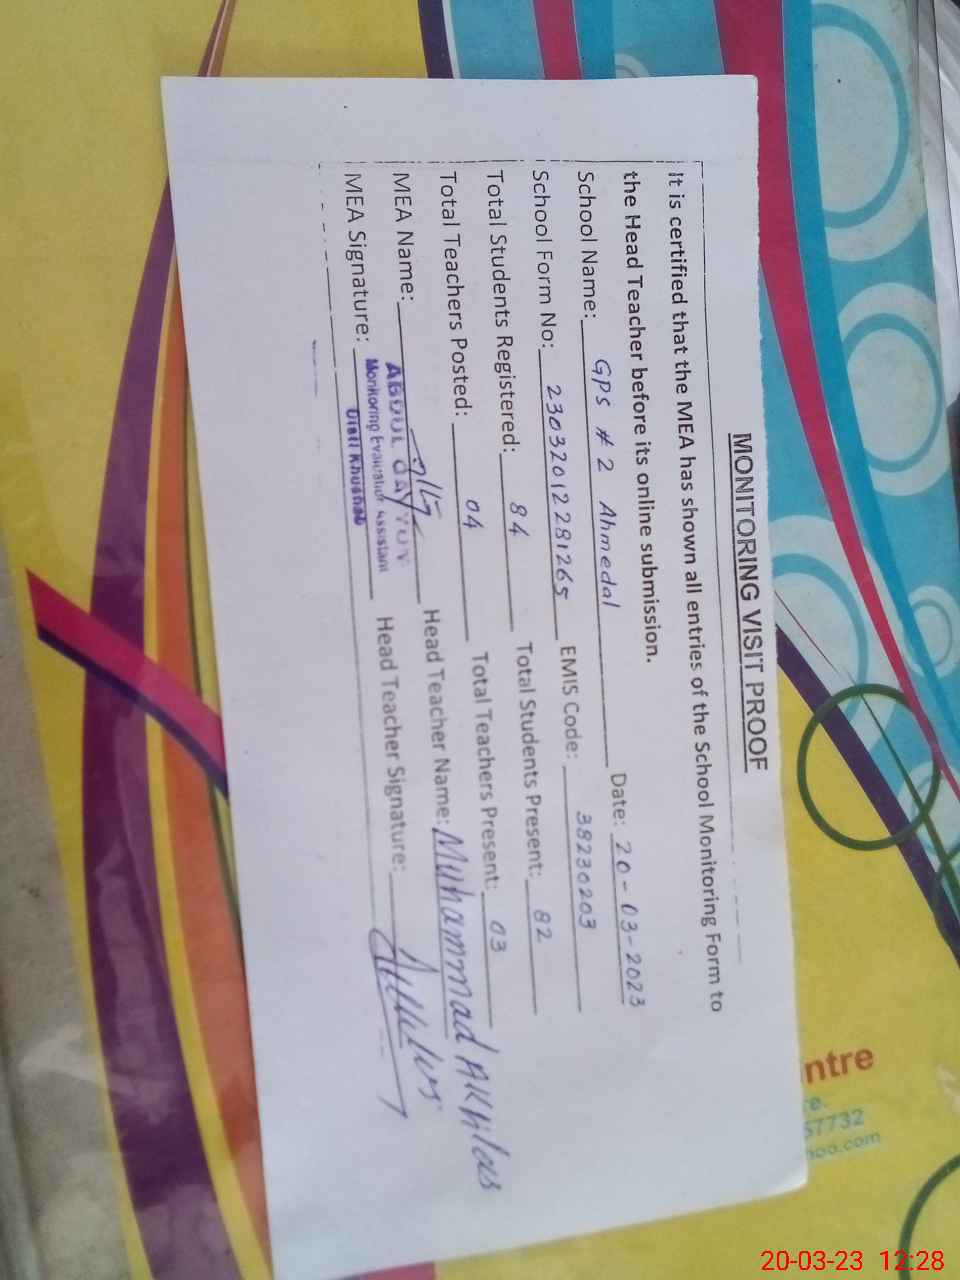 MONITORING VISIT PROOF
It is certified that the MEA has shown all entries of the School Monitoring Form to
the Head Teacher before its online submission.
School Name: GPS # 2 Ahmedal Date: 20-03-2023
School Form No: 2303201228 1265 EMIS Code: 38230203
Total Students Registered: 84 Total Students Present: 82
Total Teachers Posted: 04 Total Teachers Present: 03
MEA Name: ABDUL QAYYUM Head Teacher Name: Muhammad Akhlas
MEA Signature: Monitoring Evaluation Assistant Head Teacher Signature:
Distt Khushab
ntre
57732
hoo.com
20-03-23 12:28